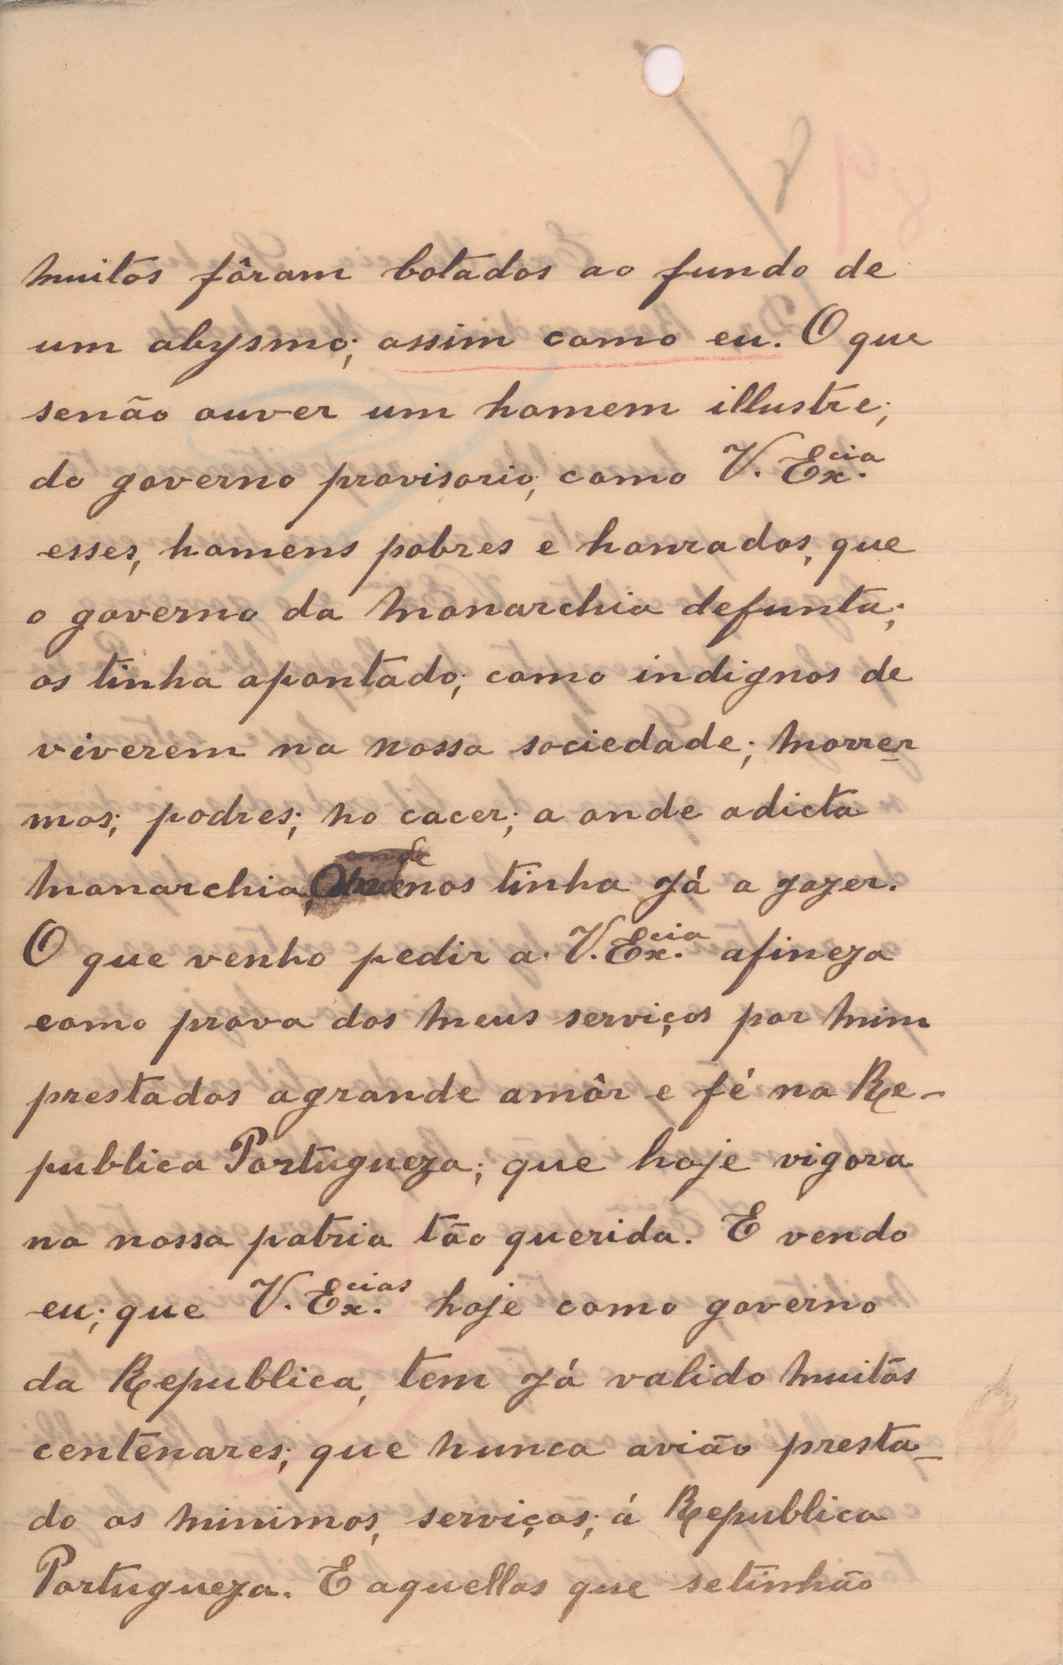 muitos fôram botados ao fundo de
um abysmo; assim como eu. O que
senão ouver um homem illustre;
do governo provisorio; como V. Ex.cia
esses, homens pobres e honrados, que
o governo da Monarchia defunta;
os tinha apontado; como indignos de
viverem na nossa sociedade; morrer
mos; podres; no cacer; a onde adicta
monarchia, onde nos tinha já a jazer.
O que venho pedir a. V. Ex.cia afineza
como prova dos meus serviços por mim
prestados agrande amôr e fé na Re-
publica Portugueza; que hoje vigora
na nossa patria tão querida. E vendo
eu; que V. Ex.cias hoje como governo
da Republica, tem já valido muitos
centenares; que nunca avião presta-
do os minimos, serviços; á Republica
Portugueza. E aquellos que setinhão